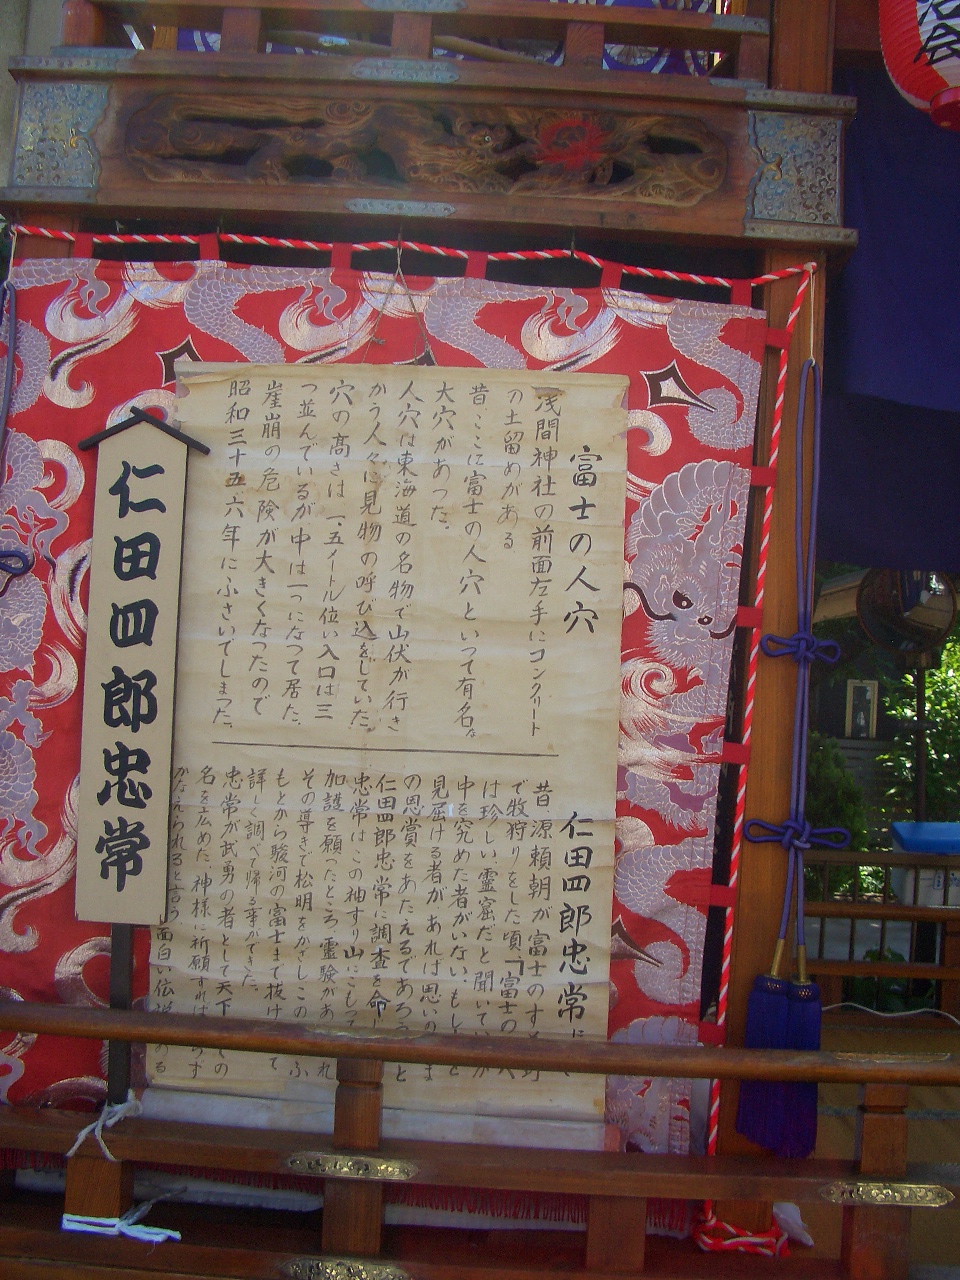 富士の人穴
浅間神社の前面左手にコンクリート
の土留めがある
昔ここに富士の人穴といって有名な
大穴があった。
人穴は東海道の名物で山伏が行き
かう人々に見物の呼び込をしていた。
穴の高さは一、五メートル位い入口は三
つ並んでいるが中は一つになって居た。
崖崩の危険が大きくなったので
昭和三十五、六年にふさいでしまった。
仁田四郎忠常
昔源頼朝が富士のすそ野
で牧狩りをした頃「富士の人
は珍しい霊窟だと聞いてい
中を究めた者がいないもし
見届ける者があれば思いのま
の恩賞をあたえるであろう と
仁田四郎忠常に調査を命じ
忠常はこの神すり山にこもって
加護を願ったところ霊験があ れ
その導きで松明をかざしこの
もとから駿河の富士まで抜け て
詳しく調べて帰る事ができた。
忠常が武勇の者として天下 の
名を広めた。神様に祈願すれば らず
かなえられると言う面白い伝説 ある
仁田四郎忠常